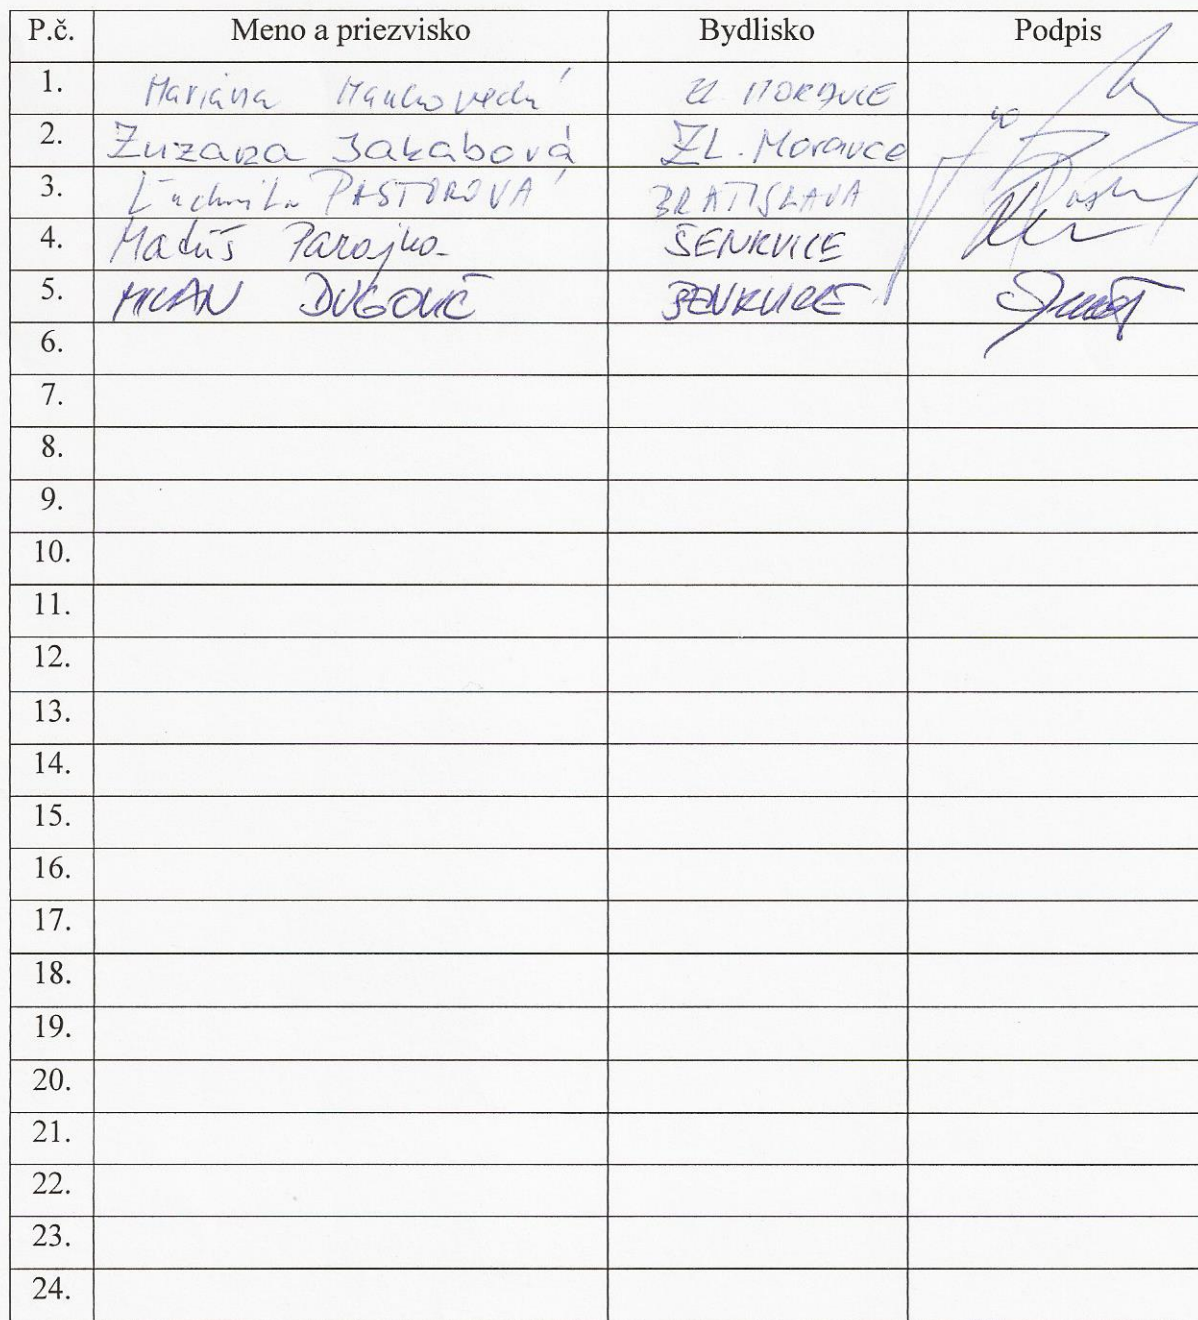 P.č. Meno a priezvisko Bydlisko Podpis
1. Mariána ZL MORAVCE
2. Zuzana Jakabová ZL. Moravce
3. Ľudmila PASTOROVÁ BRATISLAVA
4. Matúš Parajka ŠENKVICE
5. MILAN DUGOVIČ ŠENKVICE
6.
7.
8.
9.
10.
11.
12.
13.
14.
15.
16.
17.
18.
19.
20.
21.
22.
23.
24.